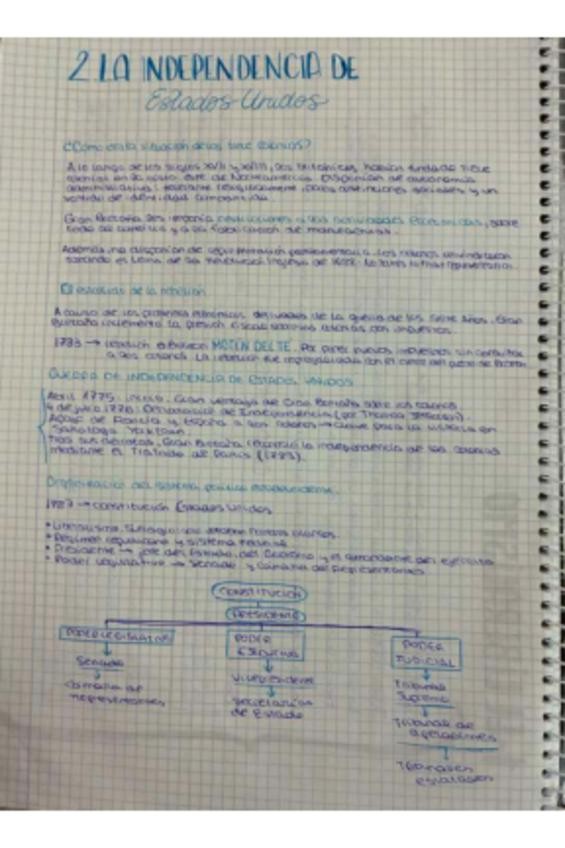 2. LA INDEPENDENCIA DE
Estados Unidos
¿Cómo era la situación de las trece colonias?
A lo largo de los siglos XVII y XVIII, los británicos habían fundado trece
colonias en la costa este de Norteamérica. Disponían de autonomía
administrativa, religiosamente, pocas distinciones sociales y un
sentido de identidad compartida.
Gran Bretaña les imponía restricciones a las actividades económicas, sobre
todo al comercio y a la fabricación de manufacturas.
Además no disponían de representación parlamentaria. Los colonos
el lema de la Revolución Inglesa de
El estallido de la rebelión
A causa de los problemas económicos derivados de la guerra de los Siete Años, Gran
Bretaña incrementó la presión fiscal con impuestos.
→ MOTÍN DEL TÉ. Por poner nuevos impuestos sin consultar
a los colonos. La rebelión fue con el cierre del puerto de Boston.
GUERRA DE INDEPENDENCIA DE ESTADOS UNIDOS
Abril 1775: inicio. Gran ventaja de Gran Bretaña sobre los colonos.
4 de julio 1776: Declaración de Independencia (por Thomas Jefferson).
Apoyo de Francia y España a los colonos → clave para la victoria en
Saratoga y Yorktown.
Tras sus derrotas, Gran Bretaña reconoció la independencia de las colonias
mediante el Tratado de París (1783).
Organización del sistema político estadounidense.
1787 → Constitución Estados Unidos
• Liberalismo. Sufragio:
• Régimen republicano y sistema federal
• Presidente → jefe del Estado, del Gobierno y el comandante del ejército
• Poder legislativo → Senado y Cámara de Representantes
CONSTITUCIÓN
PRESIDENTE
PODER LEGISLATIVO
PODER
EJECUTIVO
PODER
JUDICIAL
Senado
Vicepresidente
Tribunal
Supremo
Cámara de
representantes
Secretarios
de Estado
Tribunal de
apelaciones
Tribunales